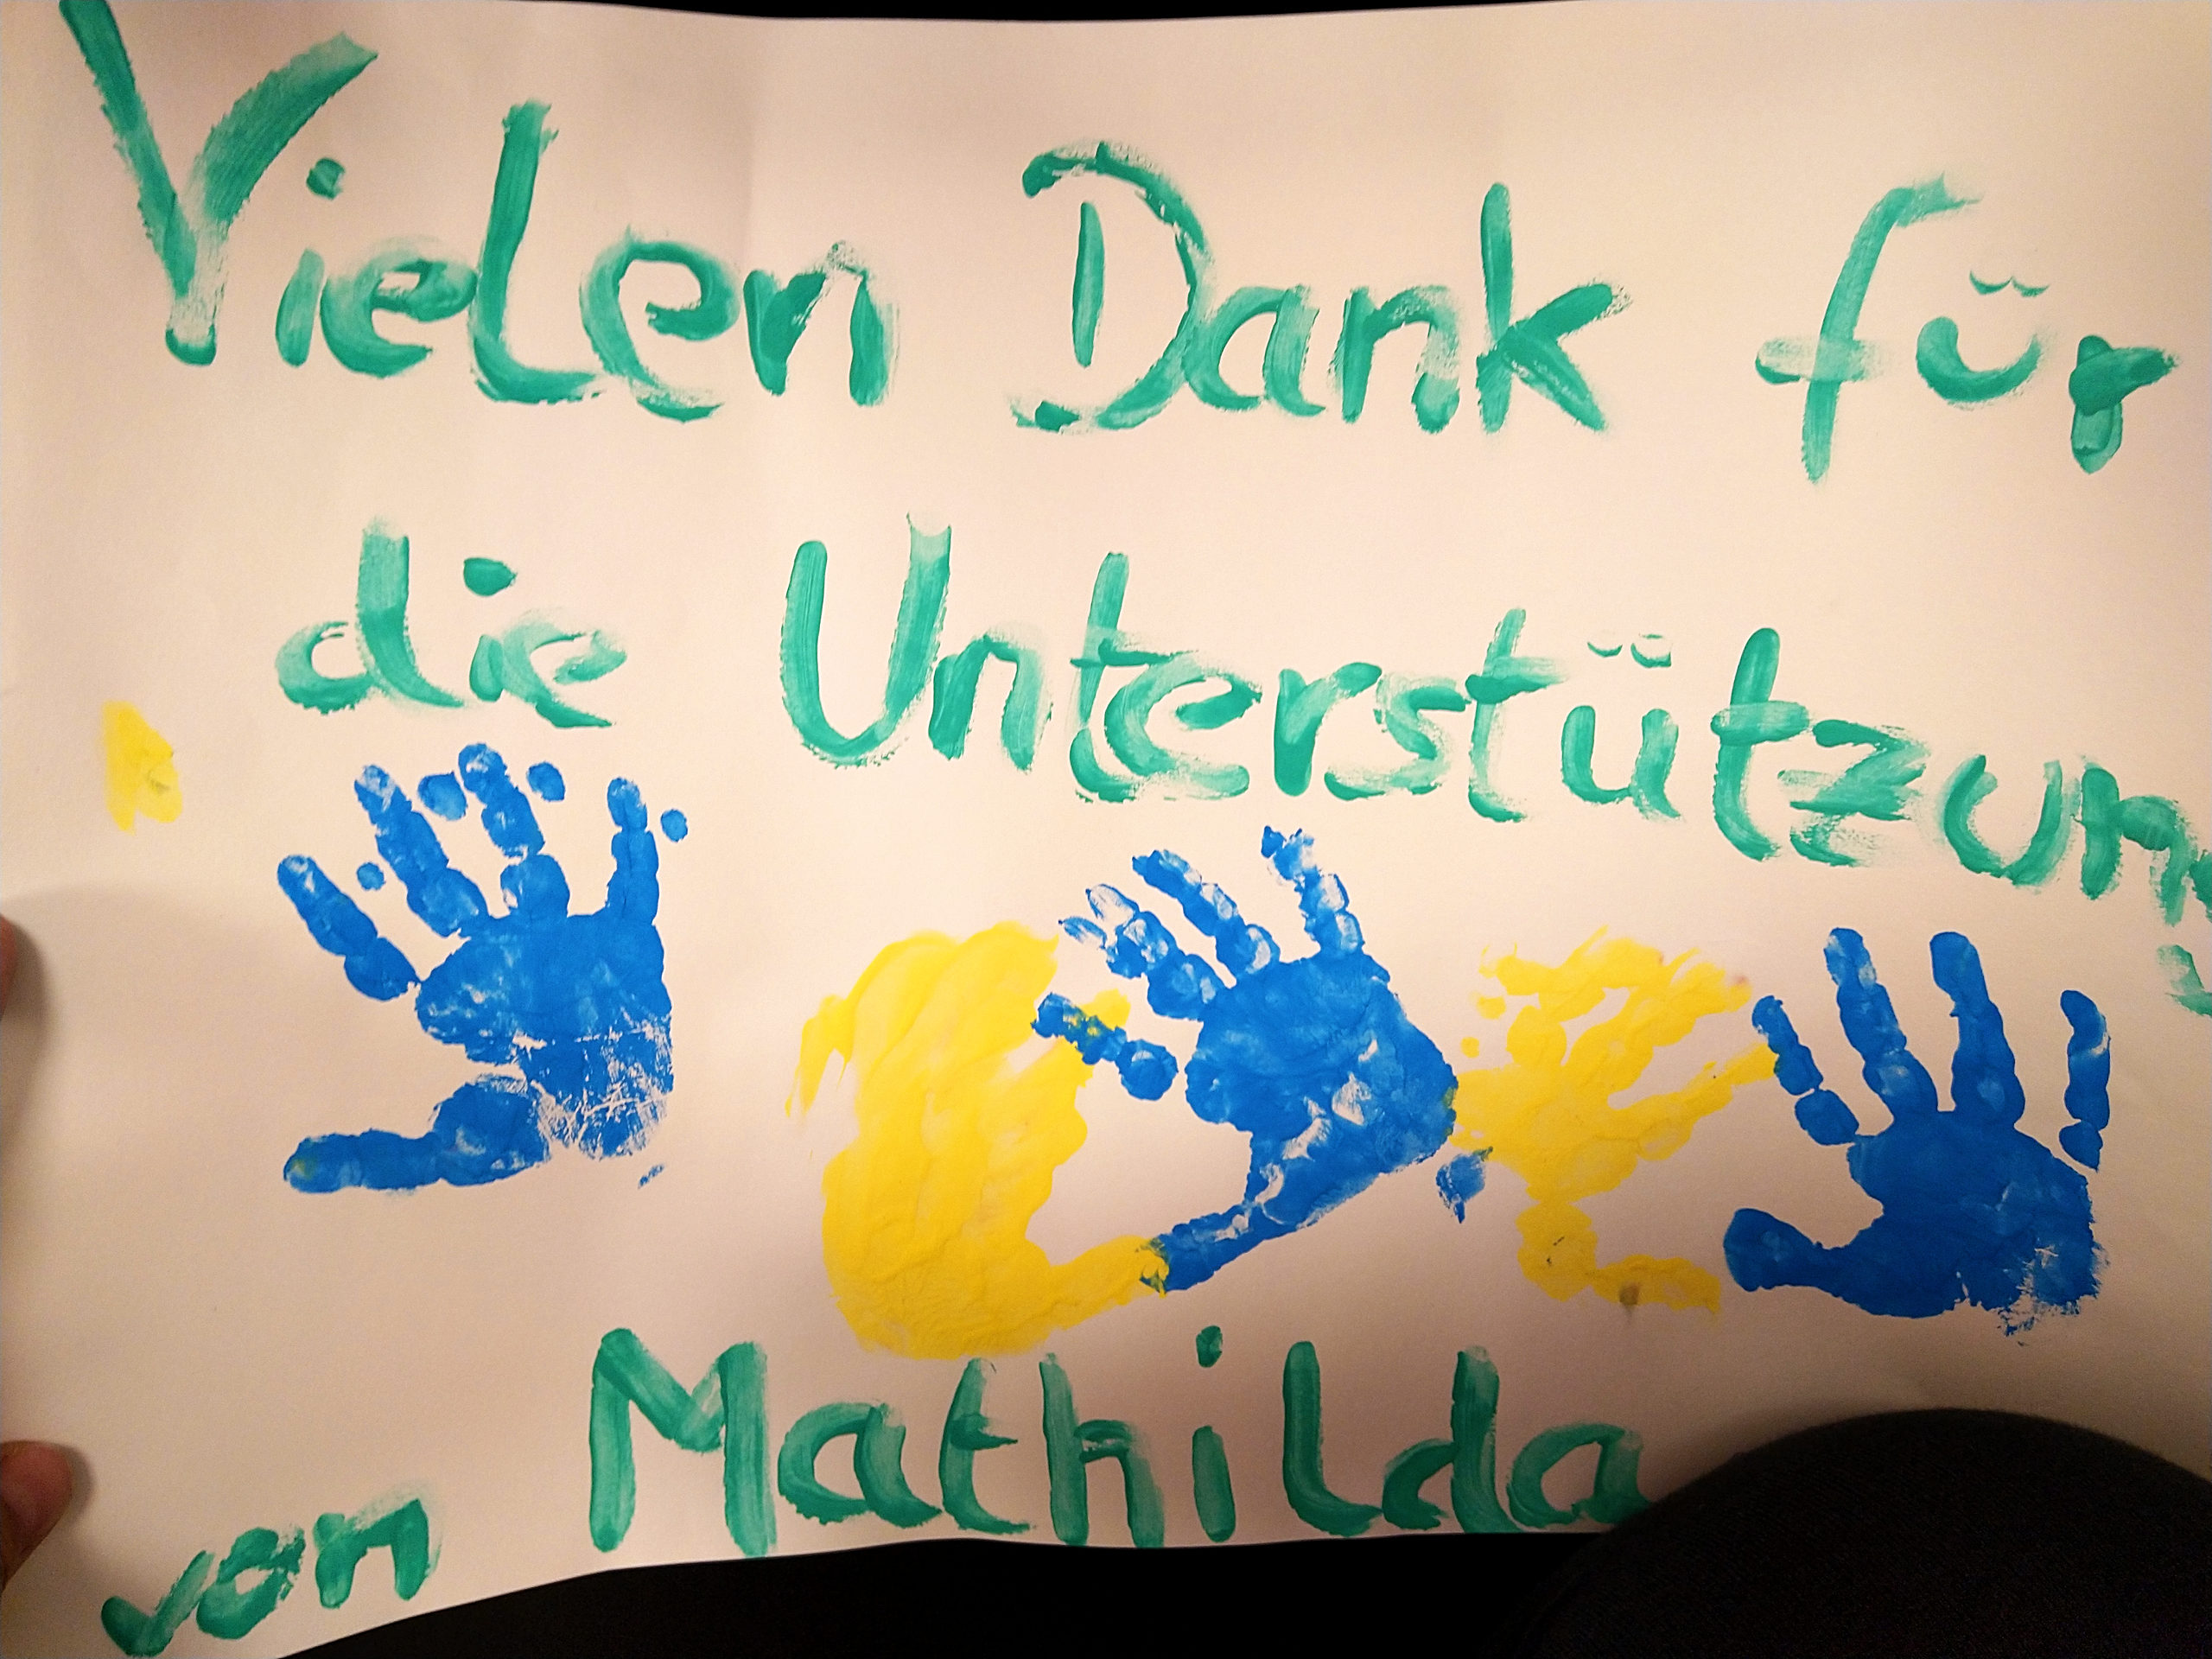 Vielen Dank für
die Unterstützung
von Mathilda